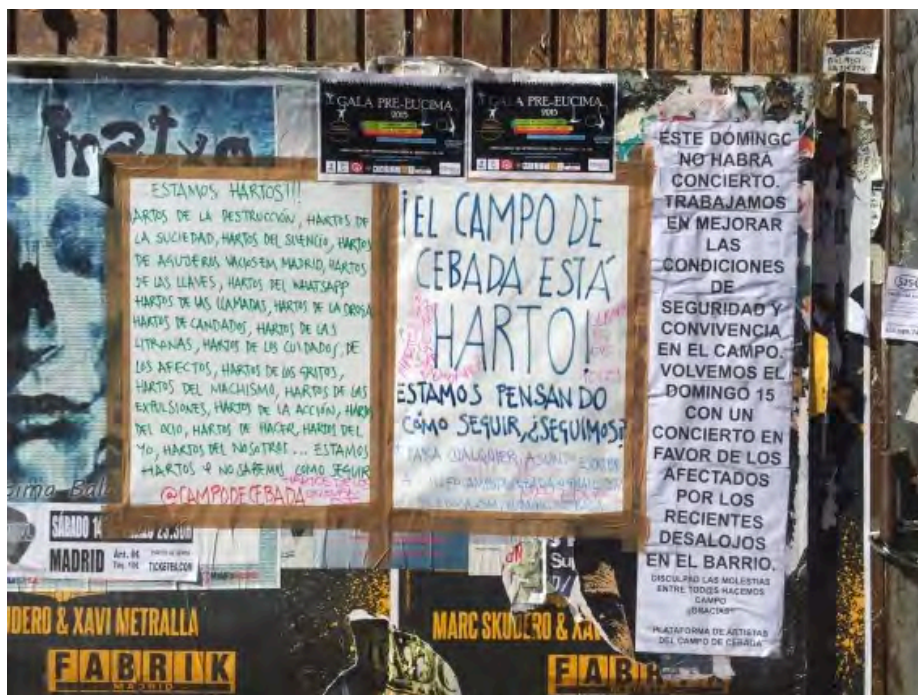 GALA PRE-EUCIMA
2015
GALA PRE-EUCIMA
2015
ESTAMOS HARTOS!!!
ARTOS DE LA DESTRUCCIÓN, HARTOS DE
LA SUCIEDAD, HARTOS DEL SILENCIO, HARTOS
DE AGUJEROS VACIOS EM MADRID, HARTOS
DE LAS LLAVES, HARTOS DEL WHATSAPP
HARTOS DE LAS LLAMADAS, HARTOS DE LA DROGA
HARTOS DE CANDADOS, HARTOS DE LAS
LITRONAS, HARTOS DE LOS CUIDADOS, DE
LOS AFECTOS, HARTOS DE LOS GRITOS,
HARTOS DEL MACHISMO, HARTOS DE LAS
EXPULSIONES, HARTOS DE LA ACCIÓN, HARTOS
DEL OCIO, HARTOS DE HACER, HARTOS DEL
YO, HARTOS DEL NOSOTROS... ESTAMOS
HARTOS Y NO SABEMOS COMO SEGUIR
@CAMPODECEBADA
¡EL CAMPO DE
CEBADA ESTÁ
HARTO!
ESTAMOS PENSANDO
CÓMO SEGUIR, ¿SEGUIMOS?
PARA CUALQUIER ASUNTO
ESTE DOMINGO
NO HABRÁ
CONCIERTO.
TRABAJAMOS
EN MEJORAR
LAS
CONDICIONES
DE
SEGURIDAD Y
CONVIVENCIA
EN EL CAMPO.
VOLVEMOS EL
DOMINGO 15
CON UN
CONCIERTO EN
FAVOR DE LOS
AFECTADOS
POR LOS
RECIENTES
DESALOJOS
EN EL BARRIO.
DISCULPAD LAS MOLESTIAS
ENTRE TOD@S HACEMOS
CAMPO
¡GRACIAS!
PLATAFORMA DE ARTISTAS
DEL CAMPO DE CEBADA
SÁBADO 14
MADRID
TICKETEA.COM
DERO & XAVI METRALLA
FABRIK
MADRID
MARC SKUDERO & XA
FABR